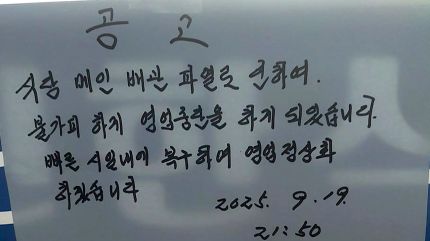 공 고
식당 메인 배관 파열로 인하여.
불가피 하게 영업중단을 하게 되었습니다.
빠른 시일내에 복구하여 영업정상화
하겠습니다
2025. 9. 19.
21:50